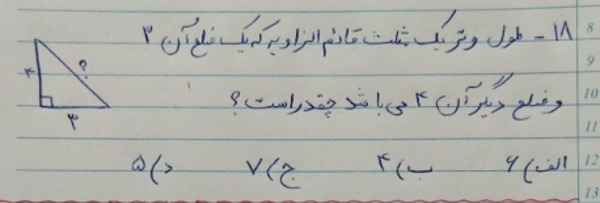 ۱۸- طول وتر یک مثلث قائم الزاویه که یک ضلع آن ۳
و ضلع دیگر آن ۴ می باشد چقدر است؟
الف) ۶ ب) ۴ ج) ۷ د) ۵
۴
؟
۳
8
9
10
11
12
13